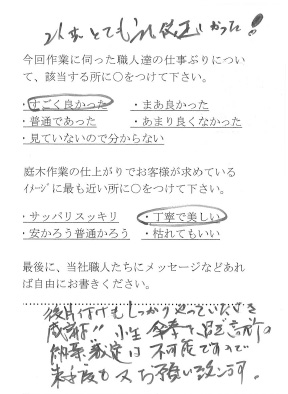 とても
今回作業に伺った職人達の仕事ぶりについ
て、該当する所に〇をつけて下さい。
・すごく良かった ・まあ良かった
・普通であった ・あまり良くなかった
・見ていないので分からない
庭木作業の仕上がりでお客様が求めている
ｲﾒｰｼﾞに最も近い所に〇をつけて下さい。
・サッパリスッキリ ・丁寧で美しい
・安かろう普通かろう ・枯れてもいい
最後に、当社職人たちにメッセージなどあれ
ば自由にお書きください。
後片付けもしっかりやっていただき
感謝!! 小生 傘寿で
剪定は 不可能ですので
来年度も又お願い致します。